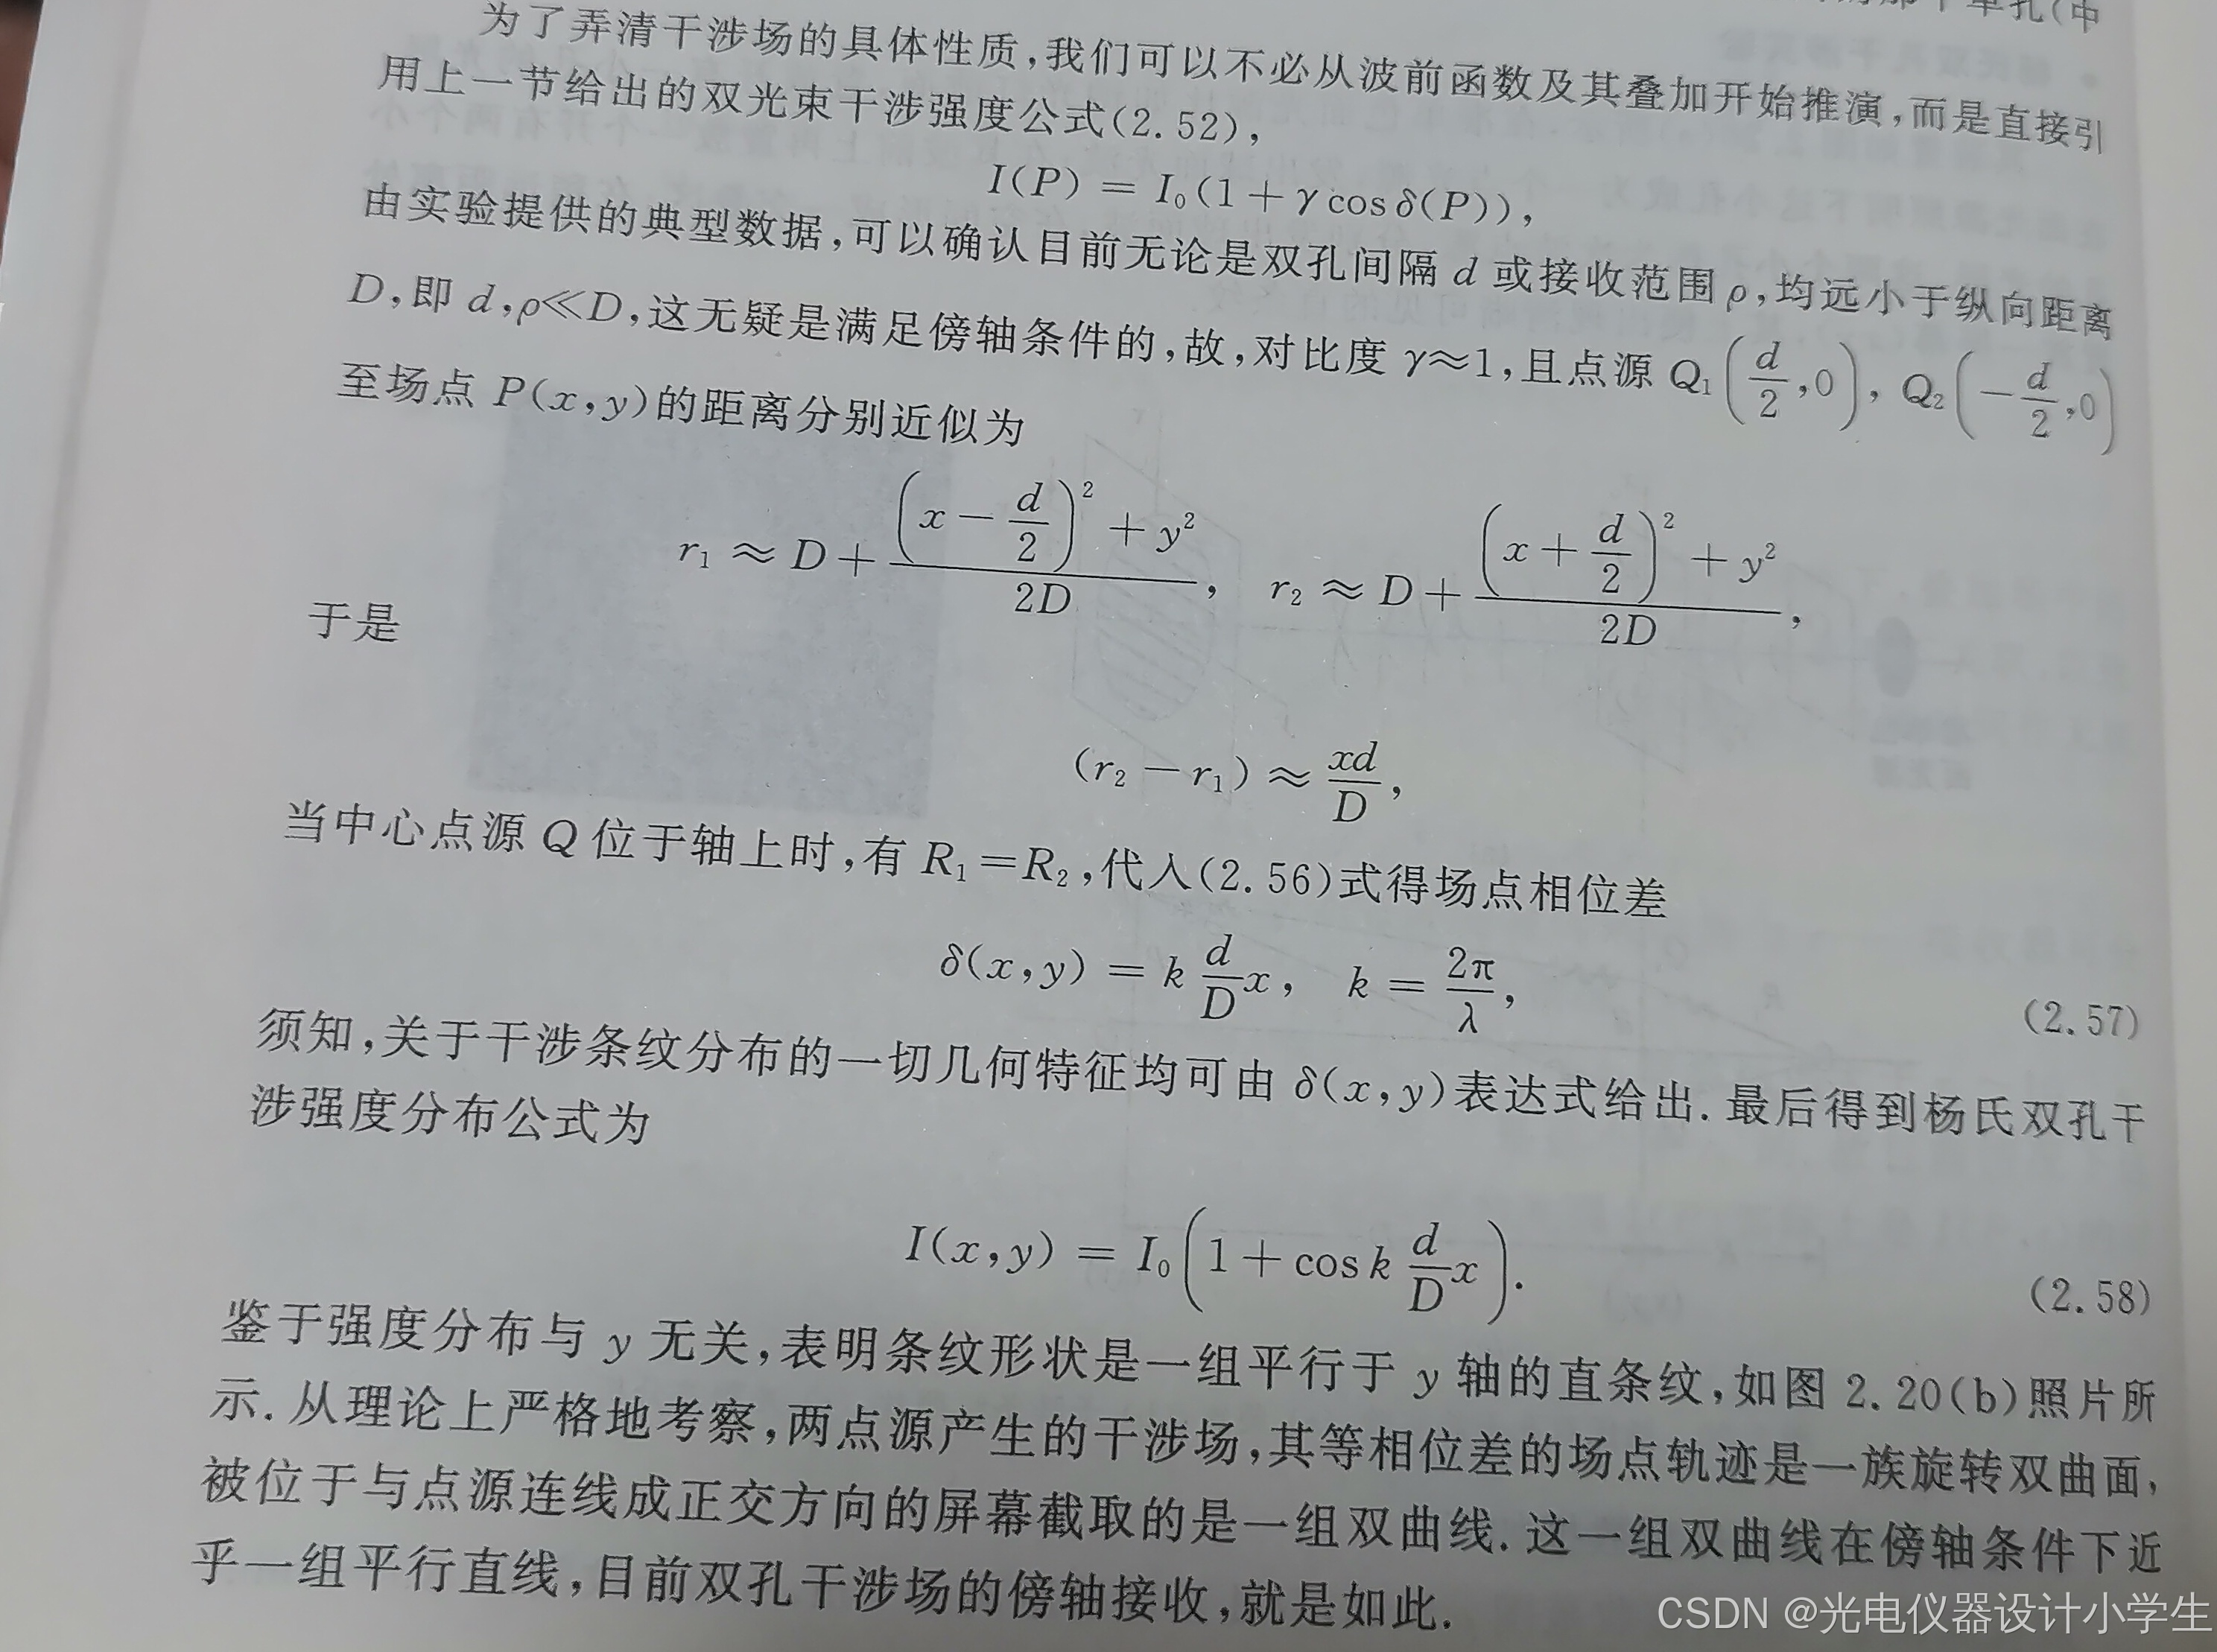 单孔(中
为了弄清干涉场的具体性质,我们可以不必从波前函数及其叠加开始推演,而是直接引
用上一节给出的双光束干涉强度公式(2.52),
I(P) = I₀(1+γcosδ(P)),
由实验提供的典型数据,可以确认目前无论是双孔间隔 d 或接收范围 ρ,均远小于纵向距离
D,即 d,ρ≪D,这无疑是满足傍轴条件的,故,对比度 γ≈1,且点源 Q₁(d/2,0), Q₂(−d/2,0)
至场点 P(x,y)的距离分别近似为
r₁ ≈ D + ((x − d/2)² + y²)/2D, r₂ ≈ D + ((x + d/2)² + y²)/2D,
于是
(r₂ − r₁) ≈ xd/D,
当中心点源 Q 位于轴上时,有 R₁=R₂,代入(2.56)式得场点相位差
δ(x,y) = k d/D x, k = 2π/λ, (2.57)
须知,关于干涉条纹分布的一切几何特征均可由 δ(x,y)表达式给出.最后得到杨氏双孔干
涉强度分布公式为
I(x,y) = I₀(1 + cos k d/D x). (2.58)
鉴于强度分布与 y 无关,表明条纹形状是一组平行于 y 轴的直条纹,如图 2.20(b)照片所
示.从理论上严格地考察,两点源产生的干涉场,其等相位差的场点轨迹是一族旋转双曲面,
被位于与点源连线成正交方向的屏幕截取的是一组双曲线.这一组双曲线在傍轴条件下近
乎一组平行直线,目前双孔干涉场的傍轴接收,就是如此.
CSDN @光电仪器设计小学生